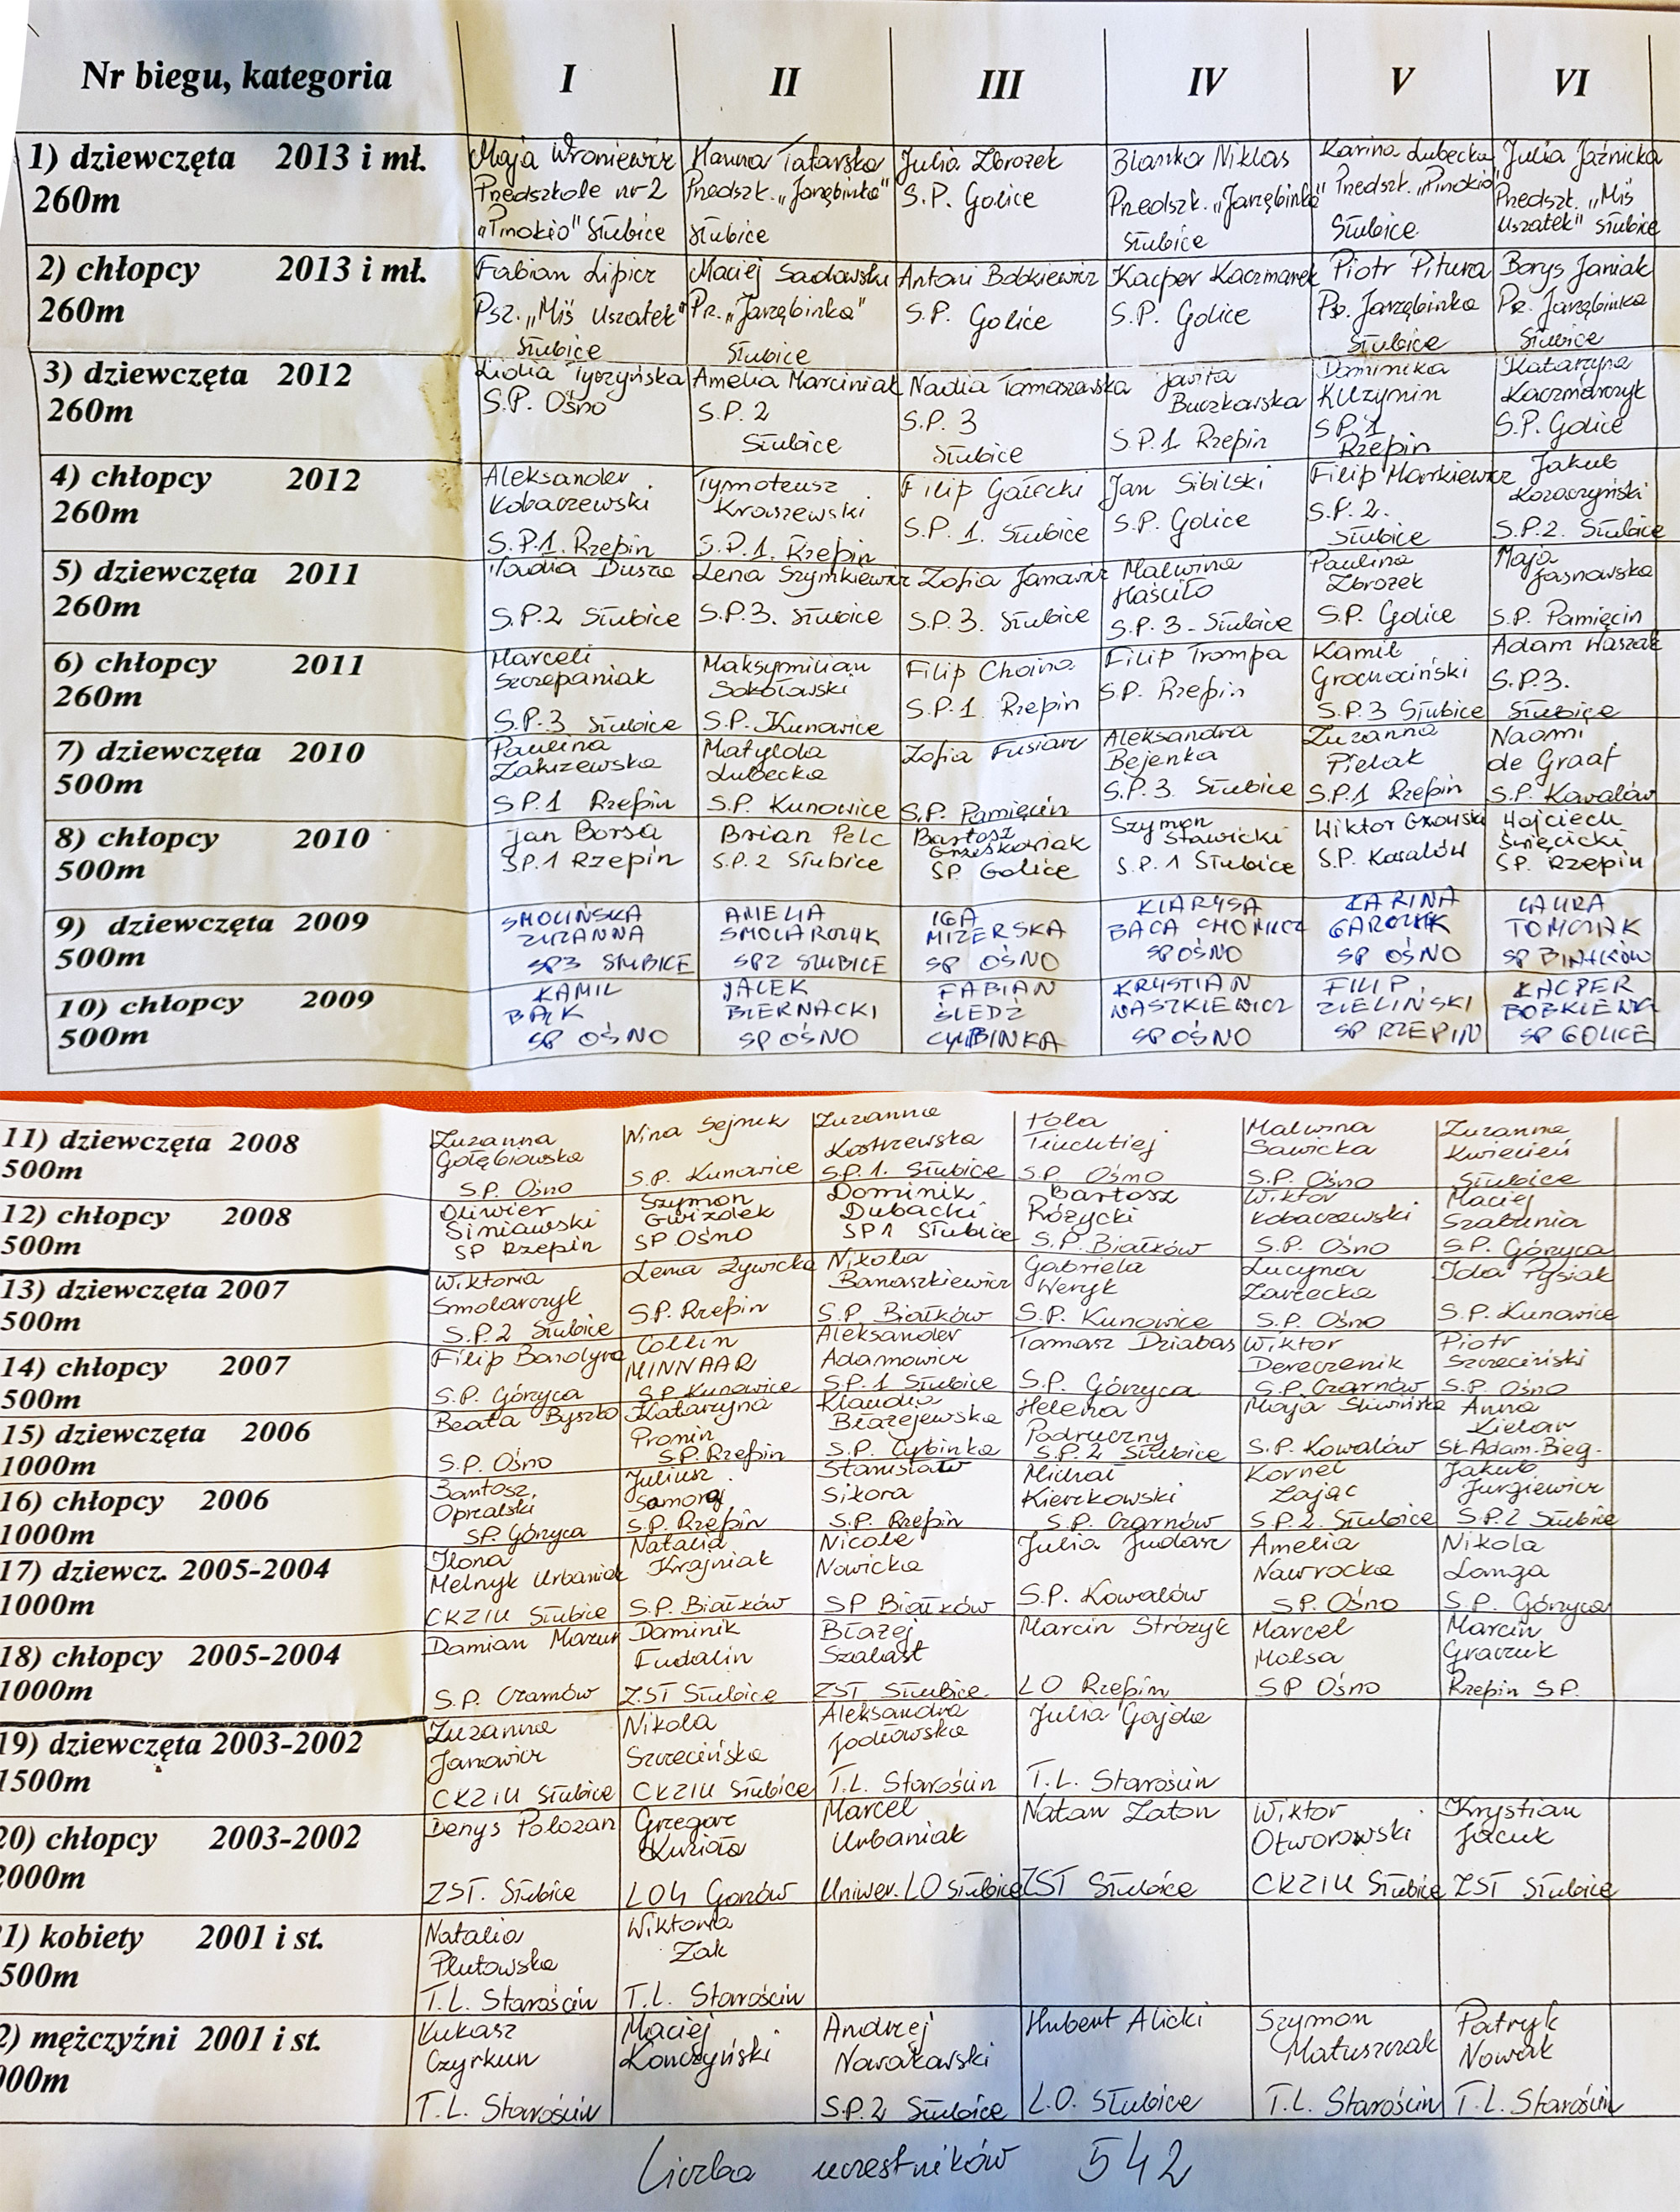 Nr biegu, kategoria I II III IV V VI
1) dziewczęta 2013 i mł.
260m
Maja Wroniewicz
Przedszkole nr 2
„Pinokio" Słubice
Hanna Tatarska
Przedszk. „Jarzębinka"
Słubice
Julia Zbrożek
S.P. Golice
Blanka Niklas
Przedszk. „Jarzębinka"
Słubice
Karina Lubecka
Przedszk. „Pinokio"
Słubice
Julia Jaźnicka
Przedszk. „Miś
Uszatek" Słubice
2) chłopcy 2013 i mł.
260m
Fabian Lipicz
Psz. „Miś Uszatek"
Słubice
Maciej Sadowski
Pr. „Jarzębinka"
Słubice
Antoni Bobkiewicz
S.P. Golice
Kacper Kaczmarek
S.P. Golice
Piotr Pitura
Pr. Jarzębinka
Słubice
Borys Janiak
Pr. Jarzębinka
Słubice
3) dziewczęta 2012
260m
Tyczyńska
S.P. Ośno
Amelia Marciniak
S.P. 2
Słubice
Nadia Tomaszewska
S.P. 3
Słubice
Buczkowska
S.P.1 Rzepin
Dominika
Kuzynin
S.P.1
Rzepin
Katarzyna
Kaczmarczyk
S.P. Golice
4) chłopcy 2012
260m
Aleksander
Kobaczewski
S.P.1. Rzepin
Tymoteusz
Kraszewski
S.P.1. Rzepin
Filip Gałecki
S.P. 1. Słubice
Jan Sibilski
S.P. Golice
Filip Markiewicz
S.P. 2.
Słubice
Jakub
Kozaczyński
S.P.2. Słubice
5) dziewczęta 2011
260m
Nadia Dusza
S.P.2 Słubice
Lena Szymkiewicz
S.P.3. Słubice
Zofia Janowicz
S.P.3. Słubice
Malwina
Haściło
S.P. 3. Słubice
Paulina
Zbrożek
S.P. Golice
Maja
Jasnowska
S.P. Pamięcin
6) chłopcy 2011
260m
Marceli
Szczepaniak
S.P.3 Słubice
Maksymilian
Sokołowski
S.P. Kunowice
Filip Choina
S.P.1 Rzepin
Filip Trompa
S.P. Rzepin
Kamil
Grochociński
S.P.3 Słubice
Adam Waszak
S.P.3.
Słubice
7) dziewczęta 2010
500m
Paulina
Zakrzewska
S.P.1 Rzepin
Matylda
Lubecka
S.P. Kunowice
Zofia Fusiarz
S.P. Pamięcin
Aleksandra
Bejenka
S.P.3. Słubice
Zuzanna
Pielak
S.P.1 Rzepin
Naomi
de Graaf
S.P. Kowalów
8) chłopcy 2010
500m
Jan Borsa
SP.1 Rzepin
Brian Pelc
S.P.2 Słubice
Bartosz
Grześkowiak
SP Golice
Szymon
Stawicki
S.P.1 Słubice
Wiktor
S.P. Kowalów
Wojciech
Święcicki
SP. Rzepin
9) dziewczęta 2009
500m
SMOLIŃSKA
ZUZANNA
SP3 SŁUBICE
AMELIA
SMOLARCZYK
SP2 SŁUBICE
IGA
MIZERSKA
SP OŚNO
KLARYSA
BACA CHOMICZ
SP OŚNO
KARINA
SP OŚNO
LAURA
TOMCZAK
SP BIAŁKÓW
10) chłopcy 2009
500m
KAMIL
BĄK
SP OŚNO
JACEK
BIERNACKI
SP OŚNO
FABIAN
ŚLEDŹ
CYBINKA
KRYSTIAN
WASZKIEWICZ
SP OŚNO
FILIP
ZIELIŃSKI
SP RZEPIN
KACPER
SP GOLICE
11) dziewczęta 2008
500m
Zuzanna
Gołębiowska
S.P. Ośno
Nina Sejnuk
S.P. Kunowice
Zuzanna
Kostrzewska
S.P.1. Słubice
Pola
S.P. Ośno
Malwina
Sawicka
S.P. Ośno
Zuzanna
Kwiecień
Słubice
12) chłopcy 2008
500m
Oliwier
Siniawski
SP Rzepin
Szymon
Gwizdek
SP Ośno
Dominik
Dubacki
SP1 Słubice
Bartosz
Różycki
S.P. Białków
Wiktor
Kobaczewski
S.P. Ośno
Maciej
Szabunia
S.P. Górzyca
13) dziewczęta 2007
500m
Wiktoria
Smolarczyk
S.P.2 Słubice
Lena Żywicka
S.P. Rzepin
Nikola
Banaszkiewicz
S.P Białków
Gabriela
Weryk
S.P. Kunowice
Lucyna
Zarzecka
S.P. Ośno
Ida Pysiak
S.P. Kunowice
14) chłopcy 2007
500m
Filip Bandyra
S.P. Górzyca
Collin
MINNAAR
S.P. Kunowice
Aleksander
Adamowicz
S.P.1 Słubice
Tomasz Dziabas
S.P. Górzyca
Wiktor
Dereczenik
S.P. Czarnów
Piotr
Szczeciński
S.P. Ośno
15) dziewczęta 2006
1000m
Beata Byszko
S.P. Ośno
Katarzyna
Pronin
S.P. Rzepin
Klaudia
Błażejewska
S.P. Cybinka
Helena
Podruczny
S.P.2 Słubice
Maja Śliwińska
S.P. Kowalów
Anna
Kielar
St. Adam. Bieg.
16) chłopcy 2006
1000m
Bartosz
Opralski
SP. Górzyca
Juliusz
Samoraj
S.P. Rzepin
Stanisław
Sikora
S.P. Rzepin
Michał
Kierzkowski
S.P. Czarnów
Kornel
Zając
S.P.2. Słubice
Jakub
Jurgiewicz
S.P.2 Słubice
17) dziewcz. 2005-2004
1000m
Ilona
Melnyk Urbaniak
CKZIU Słubice
Natalia
Krajniak
S.P. Białków
Nicole
Nowicka
SP Białków
Julia Judasz
S.P. Kowalów
Amelia
Nawrocka
SP. Ośno
Nikola
Langa
S.P. Górzyca
18) chłopcy 2005-2004
1000m
Damian Mazur
S.P. Czarnów
Dominik
Fudalin
ZST Słubice
Błażej
Szalast
ZST Słubice
Marcin Stróżyk
LO Rzepin
Marcel
Molsa
SP Ośno
Marcin
Graczuk
Rzepin SP.
19) dziewczęta 2003-2002
1500m
Zuzanna
Janowicz
CKZIU Słubice
Nikola
Szczecińska
CKZIU Słubice
Aleksandra
Jodłowska
T.L. Starościn
Julia Gajda
T.L. Starościn
20) chłopcy 2003-2002
2000m
Denys Polozan
ZST. Słubice
Grzegorz
Kuzioła
LO4 Gorzów
Marcel
Urbaniak
Uniwer. LO Słubice
Natan Zaton
ZST Słubice
Wiktor
Otworowski
CKZIU Słubice
Krystian
Jacuk
ZST Słubice
1) kobiety 2001 i st.
500m
Natalia
Plutowska
T.L. Starościn
Wiktoria
Żak
T.L. Starościn
2) mężczyźni 2001 i st.
000m
Łukasz
Czyrkun
T.L. Starościn
Maciej
Konczyński
Andrzej
Nowakowski
S.P.2 Słubice
Hubert Alicki
L.O. Słubice
Szymon
Matuszczak
T.L. Starościn
Patryk
Nowak
T.L. Starościn
Liczba uczestników 542